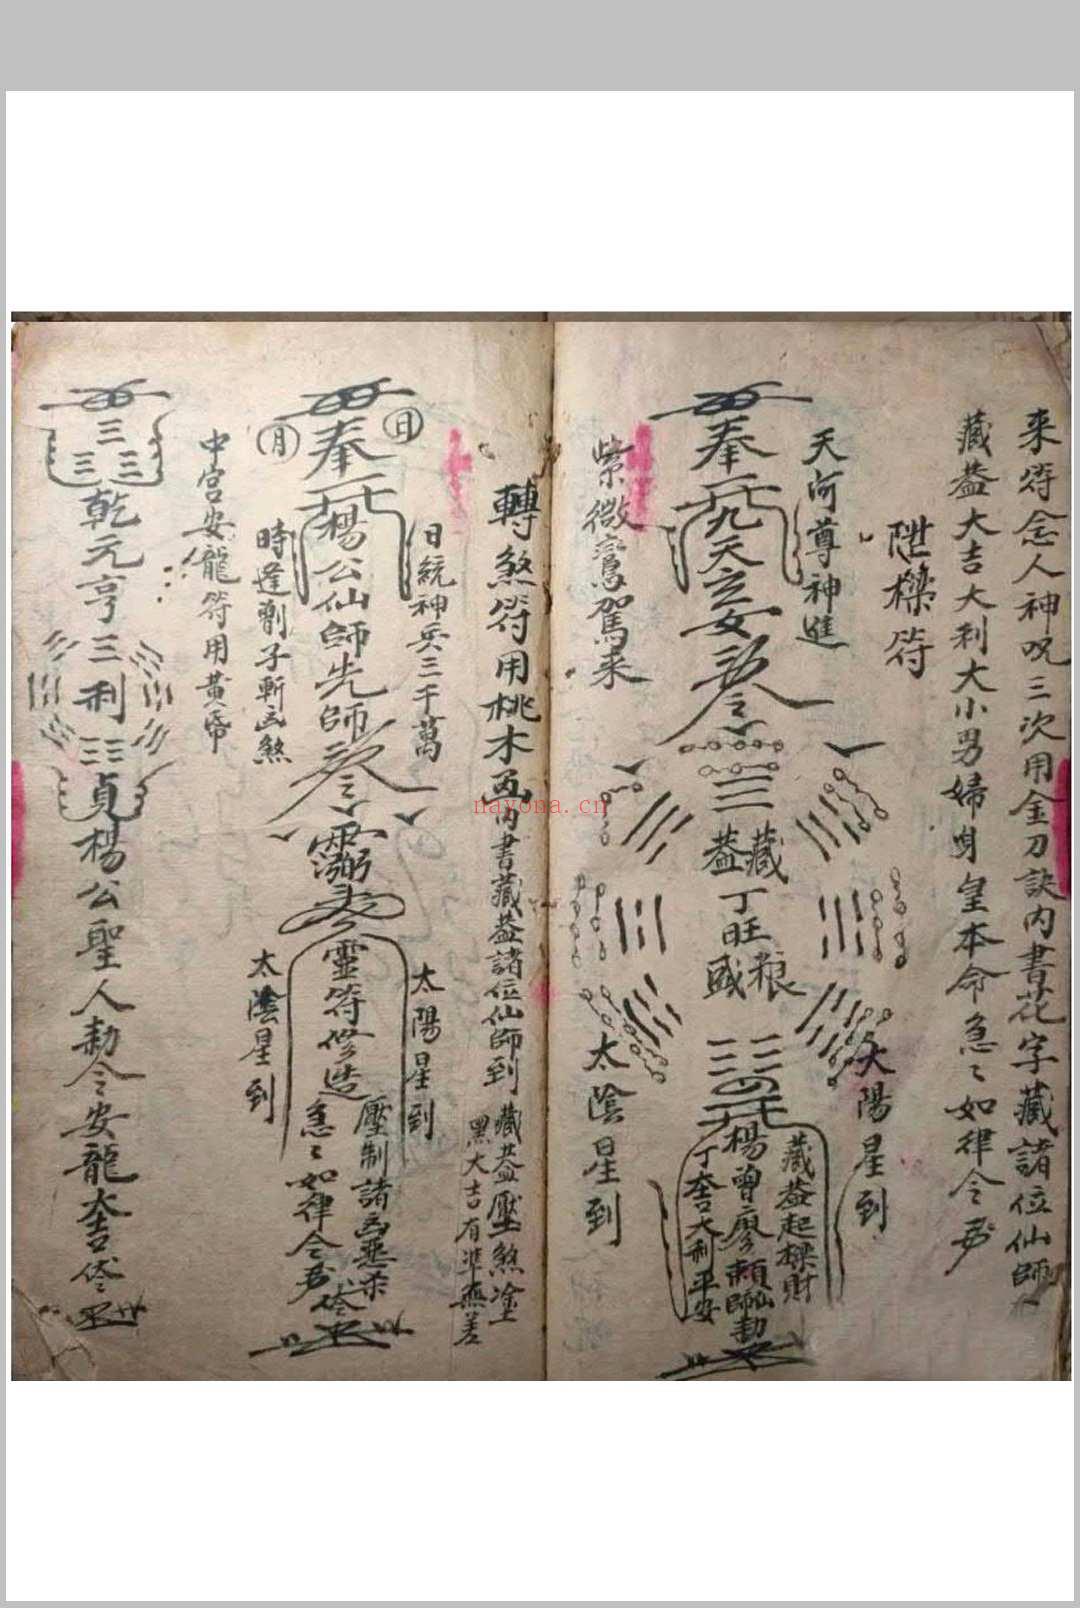 来符念人神咒三次用金刀訣內書花字藏諸位仙師
藏蓋大吉大利大小男婦身皇本命急〻如律令
陞樑符
天河尊神進
奉
九天玄女
紫微鸞駕來
藏蓋
丁旺
粮盛
太陽星到
太陰星到
藏蓋起樑財
楊曾廖賴仙師勅
丁大吉大利平安
轉煞符用桃木
內書藏蓋諸位仙師到
藏蓋壓煞塗
黑大吉有準無差
日
月
奉
楊公仙師先師
日統神兵三千萬
時逢劊子斬凶煞
靈符修造
壓制諸凶惡煞
急〻如律令
太陽星到
太陰星到
中宮安龍符用黃帋
乾元亨利貞楊公聖人勅令安龍大吉
nayona.cn